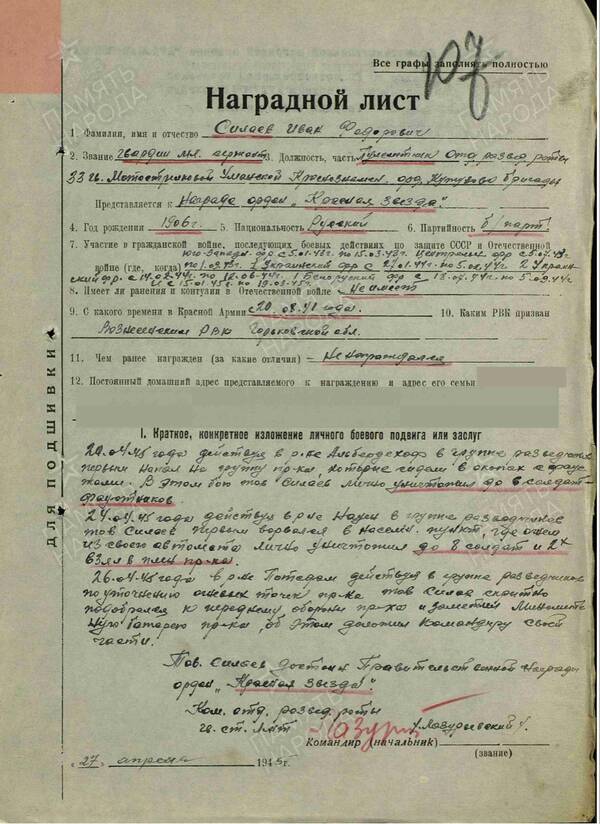 107
Все графы заполнять полностью
Наградной лист
1. Фамилия, имя и отчество Силаев Иван Федорович
2. Звание гвардии мл. сержант 3. Должность, часть Пулеметчик отд. развед роты
33 гв. Мотострелковой Уманской Краснознамен. орд. Кутузова бригады
Представляется к Награде орден „Красная звезда"
4. Год рождения 1906г. 5. Национальность Русский 6. Партийность б/парт.
7. Участие в гражданской войне, последующих боевых действиях по защите СССР и Отечественной
войне (где, когда) по 1.09.43г. 1 Украинский фр с 27.01.44г. по 5.02.44г. 2 Украин-
ский фр. с 14.02.44г. по 16.06.44г. 1 Белорусский фр с
и с 15.01.45г. по 19.03.45г.
8. Имеет ли ранения и контузии в Отечественной войне Не имеет
9. С какого времени в Красной Армии с 20.08.41 года. 10. Каким РВК призван
Вознесенским РВК Горьковской обл.
11. Чем ранее награжден (за какие отличия) Не награждался
12. Постоянный домашний адрес представляемого к награждению и адрес его семьи
I. Краткое, конкретное изложение личного боевого подвига или заслуг
20.04.45 года действуя в р-не в группе разведчиков
первым напал на группу пр-ка, которые сидели в окопах с фаус-
тами. В этом бою тов Силаев лично уничтожил до 6 солдат-
фаустников.
24.04.45 года действуя в р-не Науен в группе разведчиков
тов Силаев первым ворвался в населен. пункт, где огнем
из своего автомата лично уничтожил до 8 солдат и 2х
взял в плен пр-ка.
26.04.45 года в р-не Потсдам действуя в группе разведчиков
по уточнению огневых точек пр-ка тов Силаев скрытно
подобрался к переднему обороны пр-ка и заметил Минометн
ную батарею пр-ка, об этом доложил командиру своей
части.
Тов. Силаев достоин Правительственной Награды
орден „Красная звезда".
Ком. отд. развед. роты
гв. ст. л-нт /Лазурьевский/
Командир (начальник)
(звание)
„27" апреля 1945г.
ДЛЯ ПОДШИВКИ
ПАМЯТЬ НАРОДА